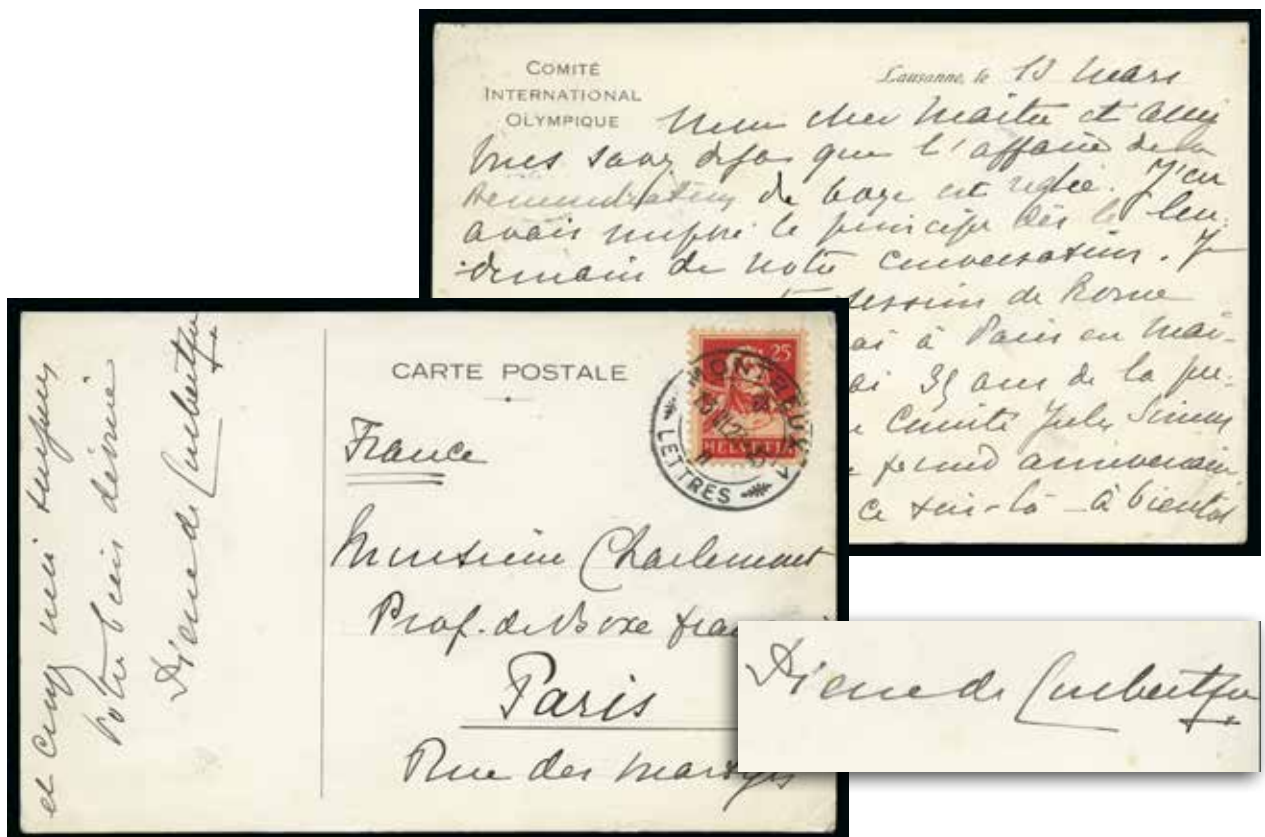 COMITÉ
INTERNATIONAL
OLYMPIQUE
Lausanne, le 13 mars
Mon cher Maître et ami
vous savez déjà que l'affaire de la
démonstration de boxe est réglée. J'en
avais le principe dès le len-
demain de notre conversation. J
session de Rome
ai à Paris en mai.
ai 35 ans de la
Comité Jules Simon
anniversaire
ce soir-là - à bientôt
et croyez moi toujours
votre bien dévoué
Pierre de Coubertin
CARTE POSTALE
25
HELVETIA
MONTREUX
LETTRES
France
Monsieur Charlemont
Prof. de Boxe
Paris
Rue des Martyrs
Pierre de Coubertin